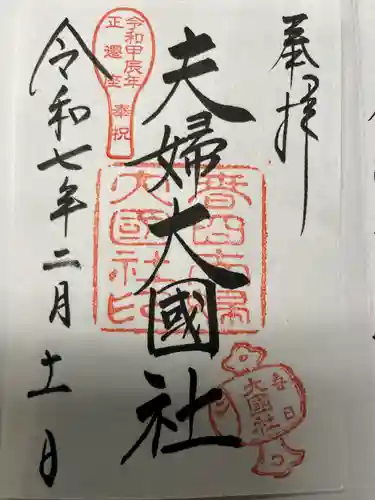 奉拝
夫婦大國社
令和七年二月十一日
令和甲辰年
正遷座
奉祝
春日
夫婦
大國社印
春日
大國社